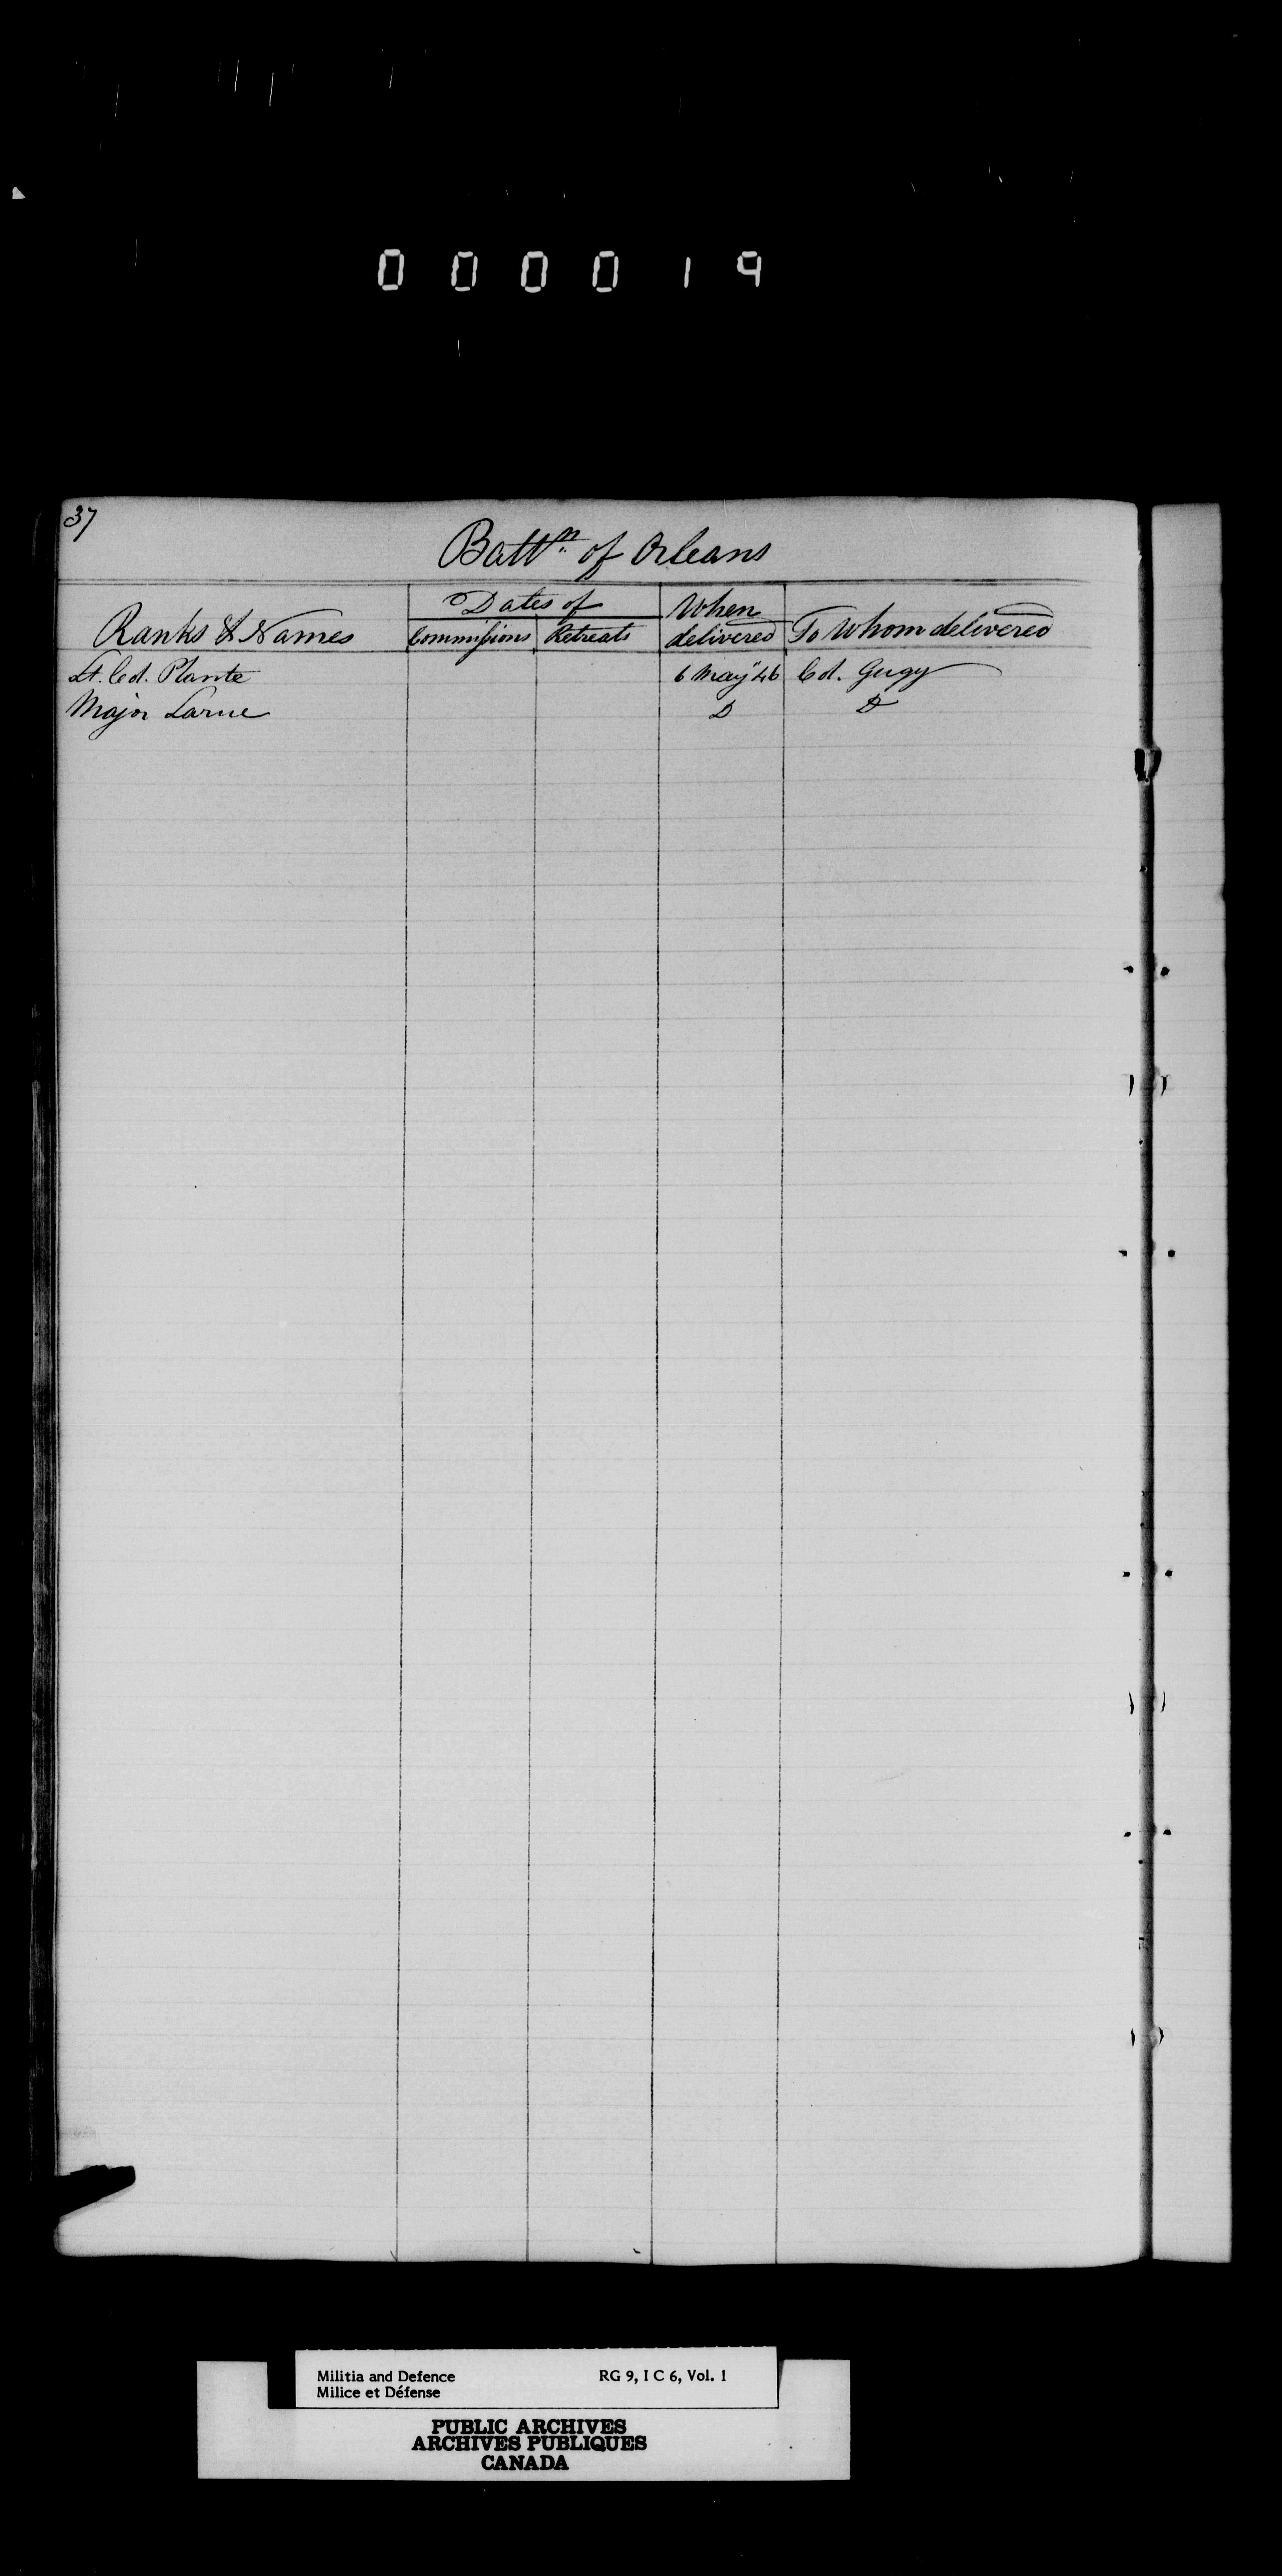 000019
37
Battn. of Orleans
Ranks & Names Dates of Commissions Retreats When delivered To Whom delivered
Lt. Col. Plante 6 May '46 Col. Gugy
Major Larue D D
Militia and Defence RG 9, I C 6, Vol. 1
Milice et Défense
PUBLIC ARCHIVES
ARCHIVES PUBLIQUES
CANADA